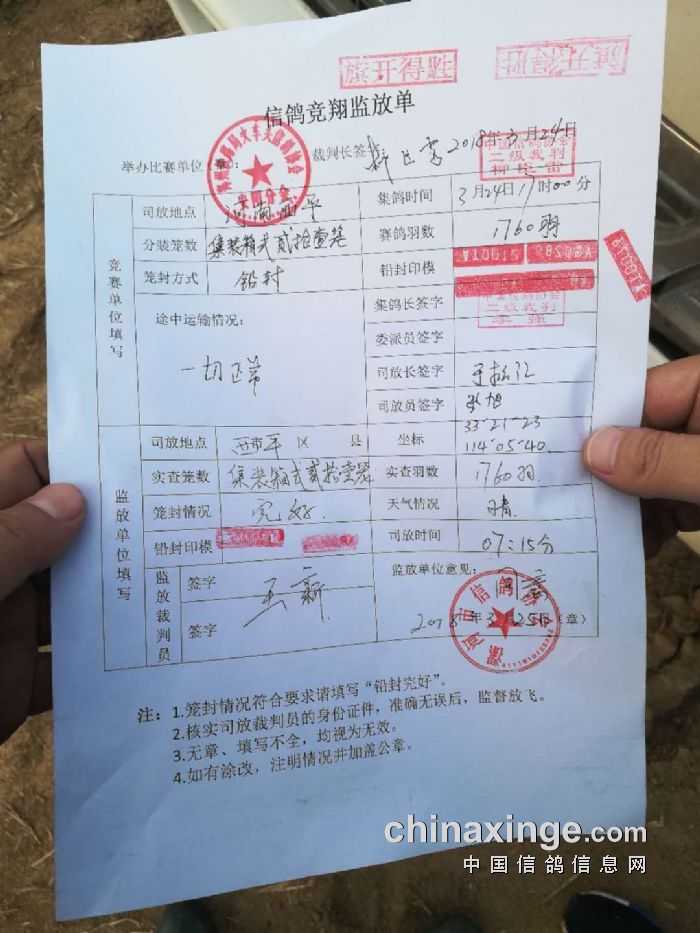 旗开得胜 旗开得胜
信鸽竞翔监放单
举办比赛单位(章): 裁判长签 2018年3月24日
二级裁判
竞赛单位填写
司放地点 河南西平 集鸽时间 3月24日17时00分
分装笼数 集装箱式贰拾壹笼 赛鸽羽数 1760羽
笼封方式 铅封 铅封印模
途中运输情况: 集鸽长签字
二级裁判
一切正常 委派员签字
司放长签字
司放员签字 张旭
监放单位填写
司放地点 西平 区 县 坐标 33-21-23
114-05-40
实查笼数 集装箱式贰拾壹笼 实查羽数 1760羽
笼封情况 完好 天气情况 晴
铅封印模 司放时间 07:15分
监放裁判员 签字 王新 监放单位意见: 同意
签字 2018年3月25日(章)
注: 1.笼封情况符合要求请填写“铅封完好”。
2.核实司放裁判员的身份证件,准确无误后,监督放飞。
3.无章、填写不全,均视为无效。
4.如有涂改,注明情况并加盖公章。
chinaxinge.com
中国信鸽信息网